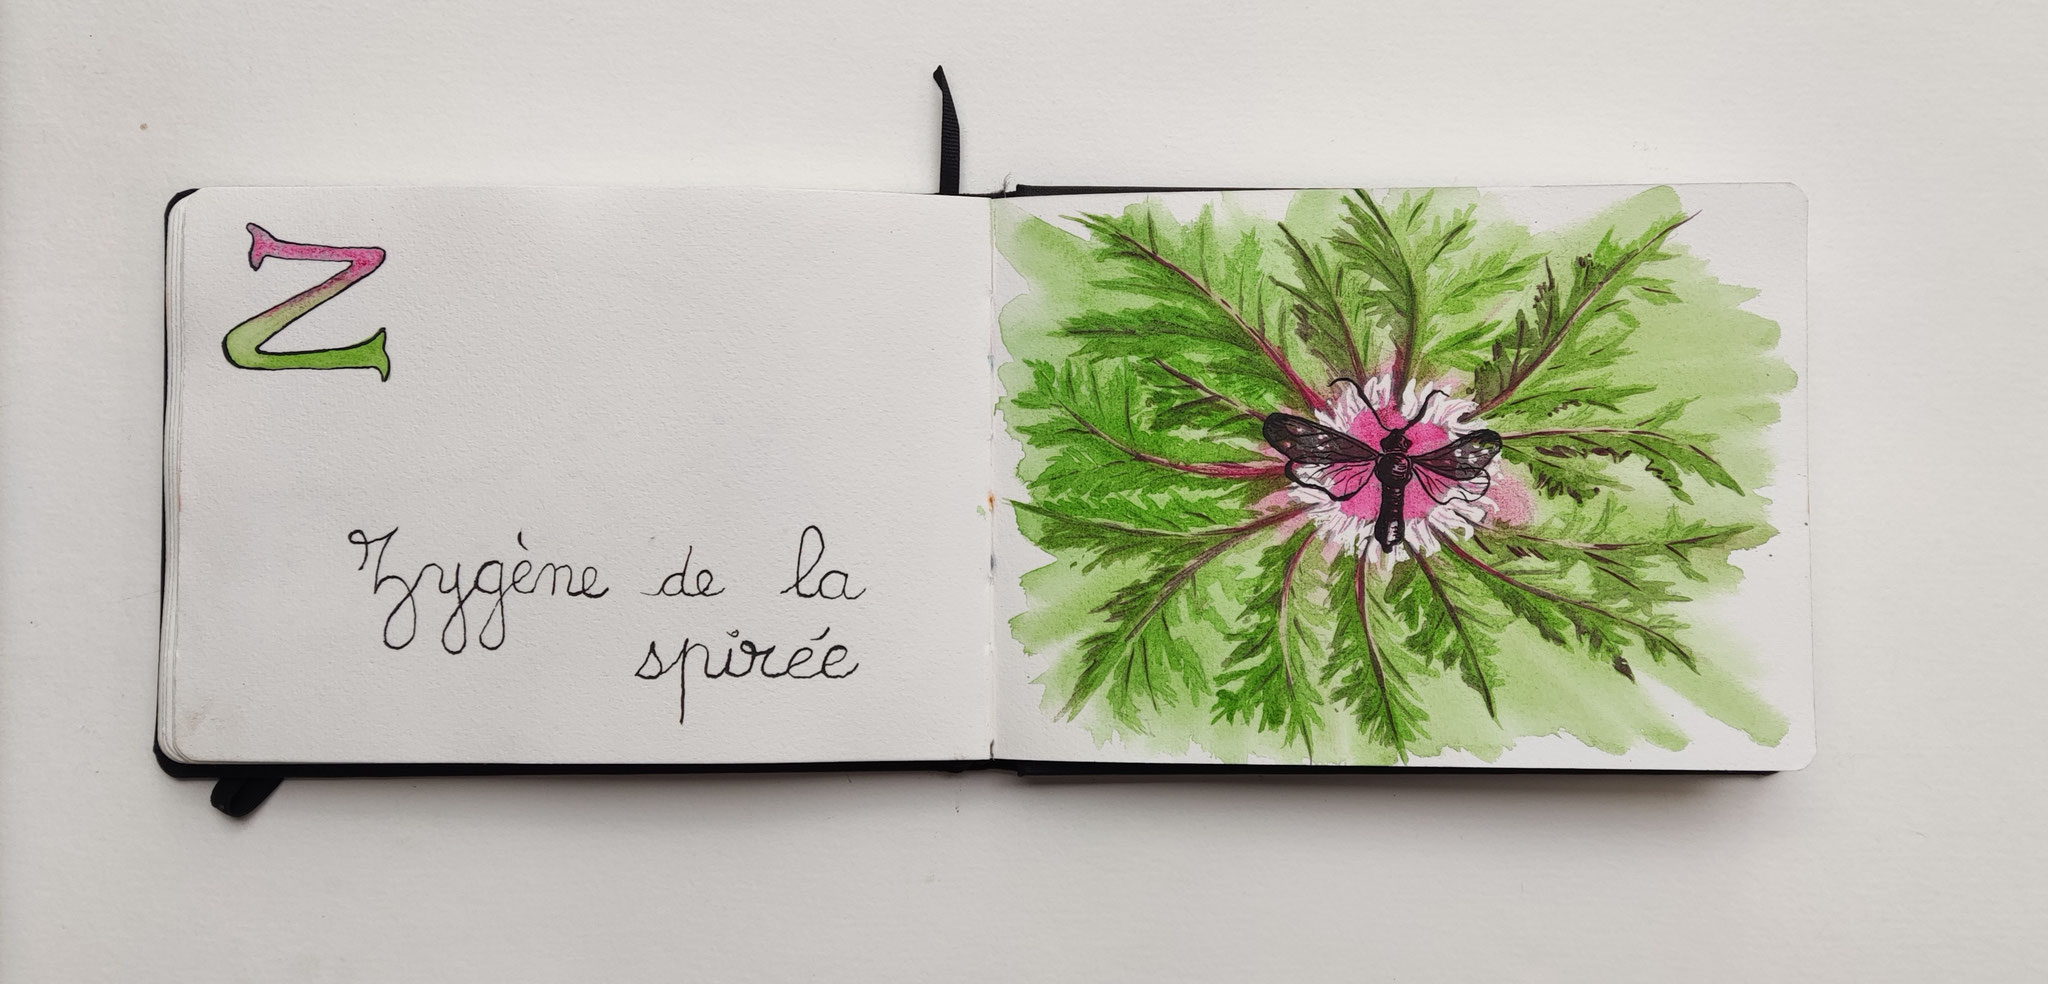 Z
Zygène de la
spirée